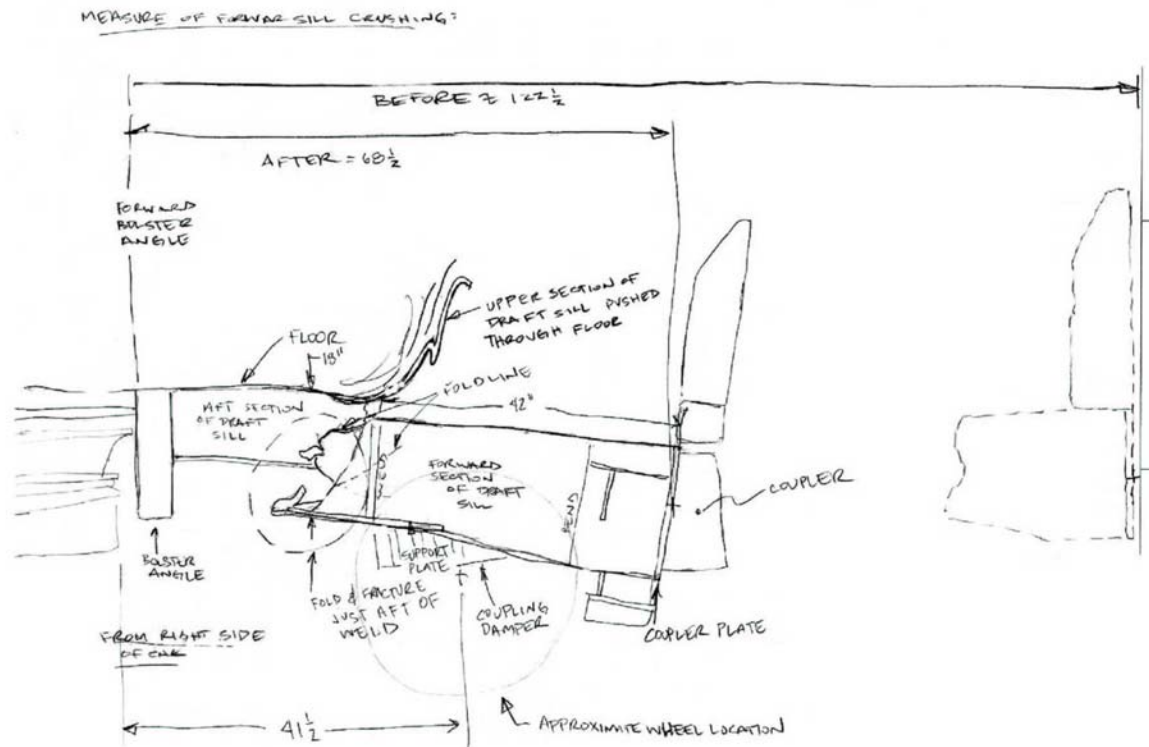 MEASURE OF FORWAR SILL CRUSHING:
BEFORE ≈ 122 1/2
AFTER = 68 1/2
FORWARD
BOLSTER
ANGLE
UPPER SECTION OF
DRAFT SILL PUSHED
THROUGH FLOOR
FLOOR
18"
FOLD LINE
42"
AFT SECTION
OF DRAFT
SILL
FORWARD
SECTION
OF DRAFT
SILL
BEND
COUPLER
BOLSTER
ANGLE
SUPPORT
PLATE
FOLD & FRACTURE
JUST AFT OF
WELD
COUPLING
DAMPER
COUPLER PLATE
FROM RIGHT SIDE
OF CAR
41 1/2
APPROXIMITE WHEEL LOCATION